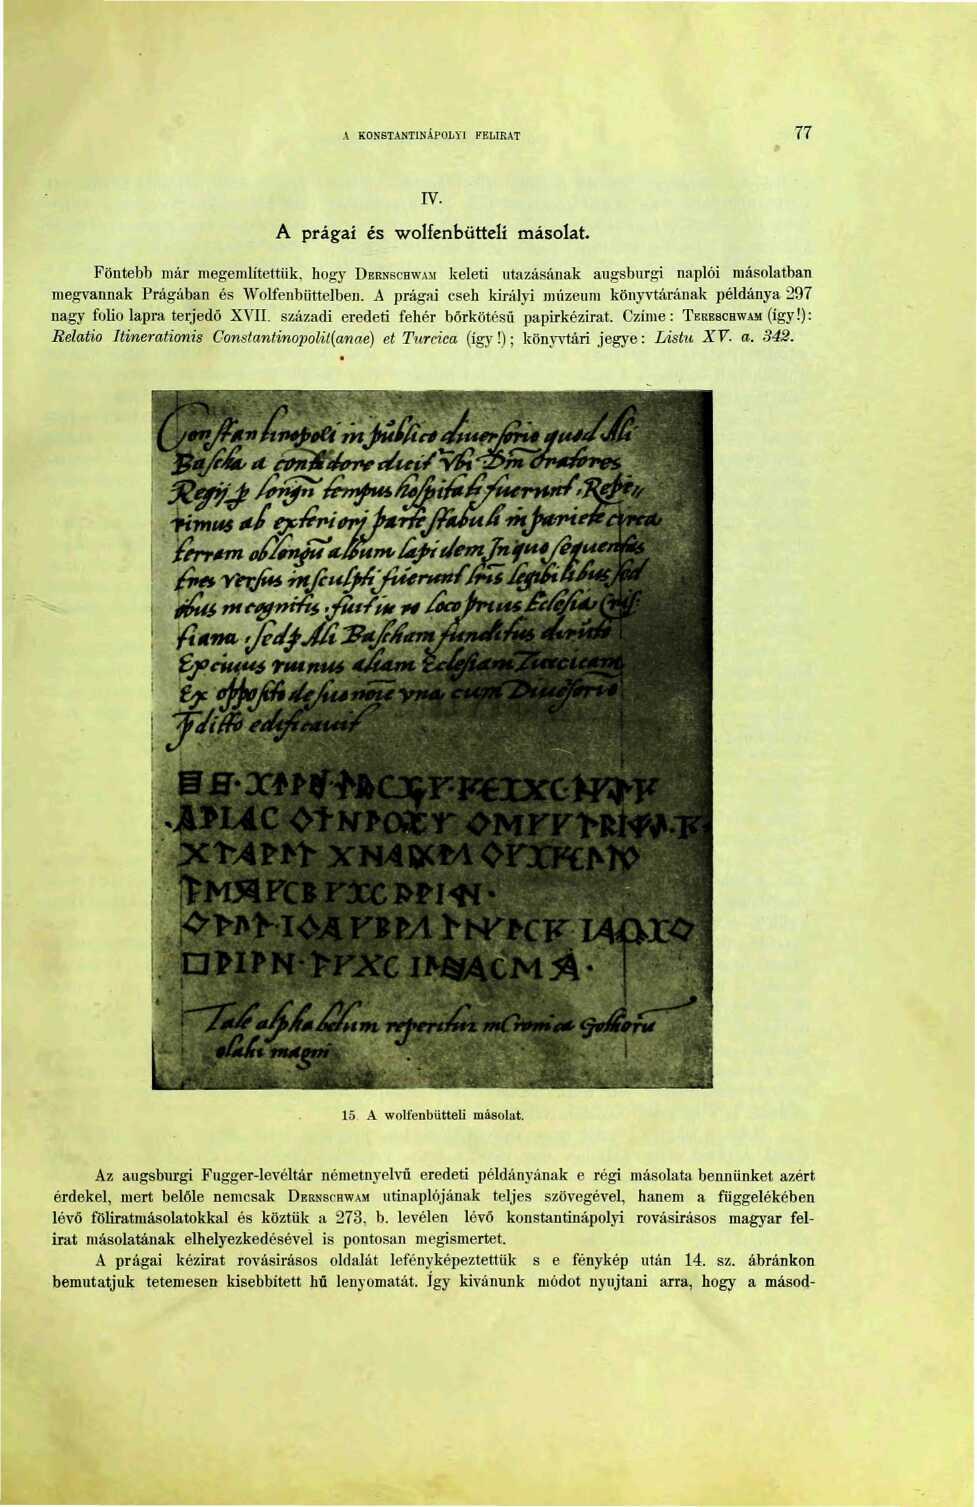 A KONSTANTINÁPOLYI FELIRAT 77
IV.
A prágai és wolfenbütteli másolat.
Föntebb már megemlítettük, hogy DERNSCHWAM keleti utazásának augsburgi naplói másolatban
megvannak Prágában és Wolfenbüttelben. A prágai cseh királyi múzeum könyvtárának példánya 297
nagy folio lapra terjedő XVII. századi eredeti fehér bőrkötésű papirkézirat. Czíme: TERESCHWAM (így!):
Relatio Itinerationis Constantinopolit(anae) et Turcica (így!); könyvtári jegye: Listu XV. a. 342.
Constantinopoli in publico diuersorio quod Ali
Bascha a conditore dicit Vbi Dm Oratores
Regij p longu tempus hospitati fuerunt, Repe
rimus ab exteriori parte stabuli in pariete circa
terram oblongu album lapidem In quo sequentes
tres versus insculpti fuerunt
fuit in eo loco prius Eclesia Cris
tiana, sed p Ali Bascham funditus diruta
Ex cuius ruinus aliam Eclesiam Turcicam
Ex opposito de suo noie vna cum Diuersorio
p ditto edificauit
Tale alphabetum reperitur in Cronica Gottoru
olahi magni
15. A wolfenbütteli másolat.
Az augsburgi Fugger-levéltár németnyelvű eredeti példányának e régi másolata bennünket azért
érdekel, mert belőle nemcsak DERNSCHWAM utinaplójának teljes szövegével, hanem a függelékében
lévő föliratmásolatokkal és köztük a 273. b. levélen lévő konstantinápolyi rovásírásos magyar fel-
irat másolatának elhelyezkedésével is pontosan megismertet.
A prágai kézirat rovásirásos oldalát lefényképeztettük s e fénykép után 14. sz. ábránkon
bemutatjuk tetemesen kisebbített hű lenyomatát. Így kivánunk módot nyujtani arra, hogy a másod-